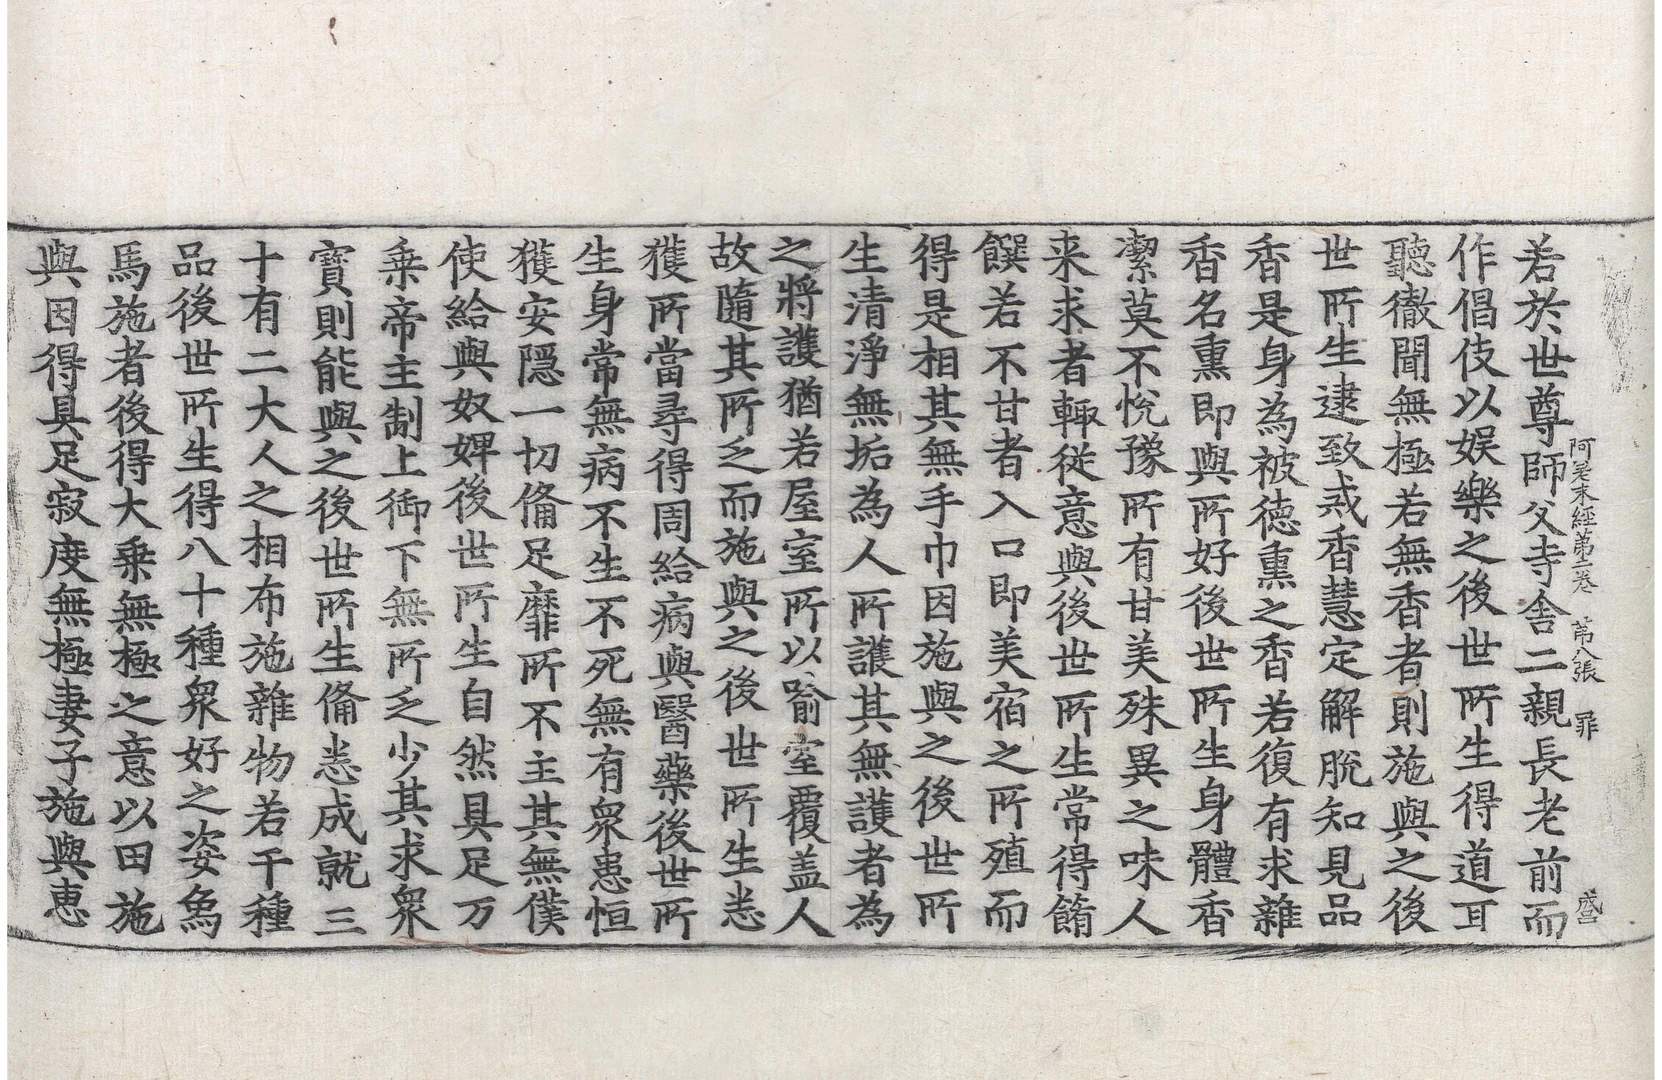 阿差末經第二卷　第八張　罪　盛吕
若於世尊師父寺舍二親長老前而
作倡伎以娱樂之後世所生得道耳
聽徹聞無極若無香者則施與之後
世所生逮致戒香慧定解脫知見品
香是身為被德熏之香若復有求雜
香名熏即與所好後世所生身體香
潔莫不悅豫所有甘美殊異之味人
来求者輙従意與後世所生常得餚
饌若不甘者入口即美宿之所殖而
得是相其無手巾因施與之後世所
生清淨無垢為人所護其無護者為
之將護猶若屋室所以喻室覆盖人
故隨其所乏而施與之後世所生悉
獲所當尋得周給病與醫藥後世所
生身常無病不生不死無有衆患恒
獲安隠一切俻足靡所不主其無僕
使給與奴婢後世所生自然具足万
乗帝主制上御下無所乏少其求衆
寶則能與之後世所生俻悉成就三
十有二大人之相布施雜物若干種
品後世所生得八十種衆好之姿象
馬施者後得大乗無極之意以田施
與因得具足寂度無極妻子施與恵